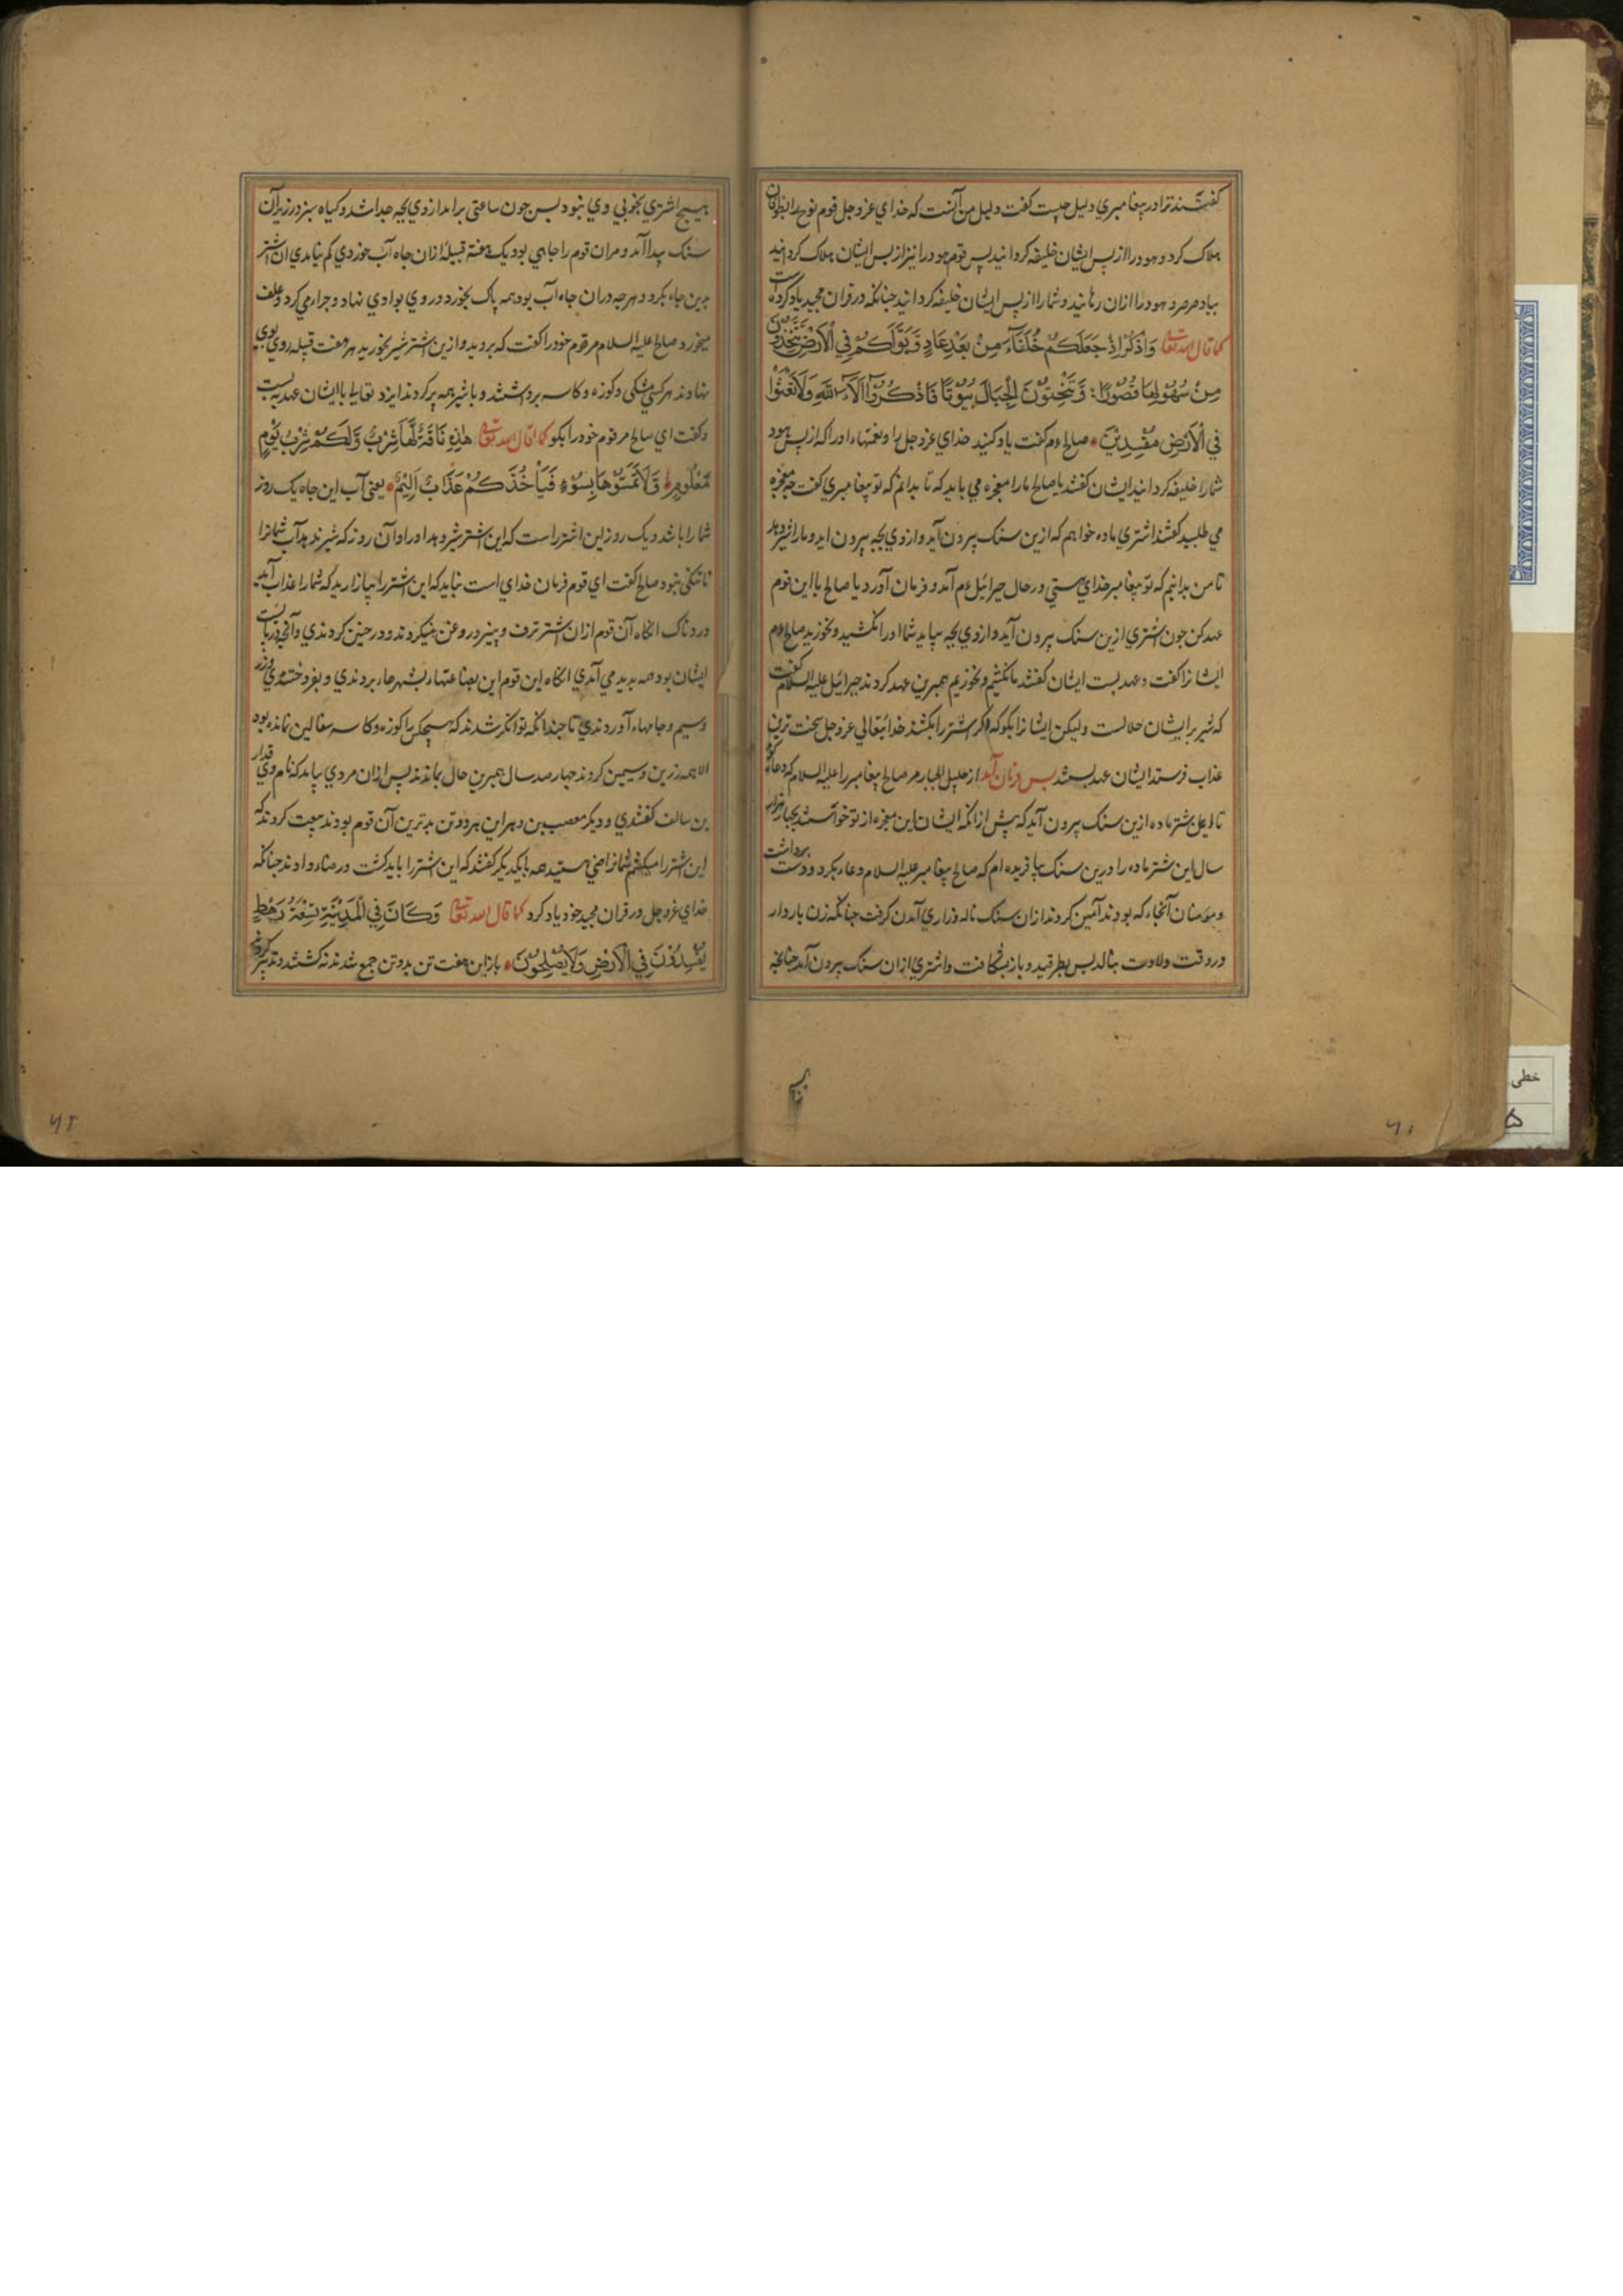 گفتند ترا در پیغامبري دلیل چیست گفت دلیل من آنست که خداي عزوجل قوم نوح را بطوفان
هلاک کرد و هود را از پس ایشان خلیفه کردانید پس قوم هود را نیز از پس ایشان هلاک کردانید
بباد صرصر و هود را ازان رهانید و شما را از پس ایشان خلیفه کردانید جنانکه در قران مجید یاد کرده است
کما قال الله تعالی وَاذْكُرُوا اِذْ جَعَلَكُمْ خُلَفَآءَ مِنْ بَعْدِ عَادٍ وَّبَوَّاَكُمْ فِي الْاَرْضِ تَتَّخِذُوْنَ
مِنْ سُهُوْلِهَا قُصُوْرًا وَّتَنْحِتُوْنَ الْجِبَالَ بُيُوْتًا فَاذْكُرُوْا اٰلَآءَ اللهِ وَلَا تَعْثَوْا
فِي الْاَرْضِ مُفْسِدِيْنَ صالح ءم گفت یاد کنید خداي عزوجل را و نعمتهاء او را که از پس هود
شما را خلیفه کردانید ایشان گفتند یا صالح ما را معجزه مي باید که تا بدانم که تو پیغامبري گفت چه معجزه
مي طلبید گفتند اشتري ماده خواهم که ازین سنک بیرون آید و از وي بجه بیرون اید و ما را شیر دهد
تا من بدانیم که تو پیغامبر خداي هستي در حال جبرائیل ءم آمد و فرمان آورد یا صالح با این قوم
عهد کن جون اشتري ازین سنک بیرون آید و از وي بجه بیاید شما او را نکشید و نخورید صالح ءم
ایشانرا گفت و عهد بست ایشان گفتند ما نکشیم و نخوریم همبرین عهد کردند جبرائیل علیه السلام گفت
که شیر بر ایشان حلالست ولیکن ایشانرا بکو که اگر اشتر را بکشند خدایتعالي عزوجل سخت ترین
عذاب فرستد ایشان عهد بستند بس فرمان آمد از جلیل الجبار مر صالح پیغامبر را علیه السلام که دعا کن
تا از عل شتر ماده ازین سنک بیرون آید که پیش ازانکه ایشان این معجزه از تو خواستند بجهار هزار
سال این شتر ماده را درین سنک بیافریده ام که صالح پیغامبر علیه السلام دعاء بکرد و دست برداشت
و مومنان آنجاء که بودند آمین کردند ازان سنک ناله و زاري آمدن کرفت جنانکه زن باردار
در وقت ولادت بنالد بس بطرقید و باز بشکافت و اشتري ازان سنک بیرون آمد جنانجه
هیچ اشتري بخوبي وي نبود بس جون ساعتی برامد از وي بجه جدا شد و کیاه سبز در زیر آن
سنک پیدا آمد و مران قوم را جاهي بود یک هفته قبیله ازان جاه آب خوردي کم نیامدي ان اشتر
برین جاء بکرد و هرچه دران جاه آب بود همه پاک بخورد و روي بوادي نهاد و چرا مي کرد و علف
میخورد صالح علیه السلام مر قوم خود را گفت که بروید و ازین اشتر شیر بخورید هر هفت قبیله روي بوي
نهادند هر کسي مشکی و کوزه و کاسه برداشتند و با شیر همه پر کردند ایزد تعالیا با ایشان عهد بست
و گفت اي صالح مر قوم خود را بکو کما قال الله تعالی هٰذِهٖ نَاقَةٌ لَّهَا شِرْبٌ وَّلَكُمْ شِرْبُ يَوْمٍ
مَّعْلُوْمٍ وَّلَا تَمَسُّوْهَا بِسُوْٓءٍ فَيَاْخُذَكُمْ عَذَابٌ اَلِيْمٌ یعنی آب این جاه یک روز
شما را باشد و یک روز این اشتر راست که این اشتر شیر دهد او را و آن روز که شیر ندهد آب شمانرا
تا تنکی نبود صالح گفت اي قوم فرمان خداي است نباید که این اشتر را بیازارید که شما را عذاب آید
دردناک انکاه آن قوم ازان اشتر ترف و پنیر و روغن میکردند و در خنین کردندي و آنچه دربایست
ایشان بود همه پدید مي آمدي انکاه این قوم این بضاعتهاء بشهرهاء بردندي و بفروختندي و زر
و سیم و جامهاء آوردندي تا جندانکه توانکر شدند که هیچکس را کوزه و کاسه سفالین نمانده بود
الا همه زرین و سیمین کردند جهار صد سال همبرین حال بماندند پس ازان مردي بیامد که نام وي قدار
بن سالف گفتندي و دیکر مصعب بن دهر این هر دو تن بدترین آن قوم بودند بیعت کردند که
این اشتر را میکشم شمانرا ضي هستید همه بایکدیکر گفتند که این اشتر را باید کشت و رضاء دادند جنانکه
خداي عزوجل در قران مجید خود یاد کرد کما قال الله تعالی وَكَانَ فِي الْمَدِيْنَةِ تِسْعَةُ رَهْطٍ
يُّفْسِدُوْنَ فِي الْاَرْضِ وَلَا يُصْلِحُوْنَ باز این هفت تن بدو تن جمع شدند نه کشتند و تدبیر کردند
۶۱
۶۲
خطی
۵